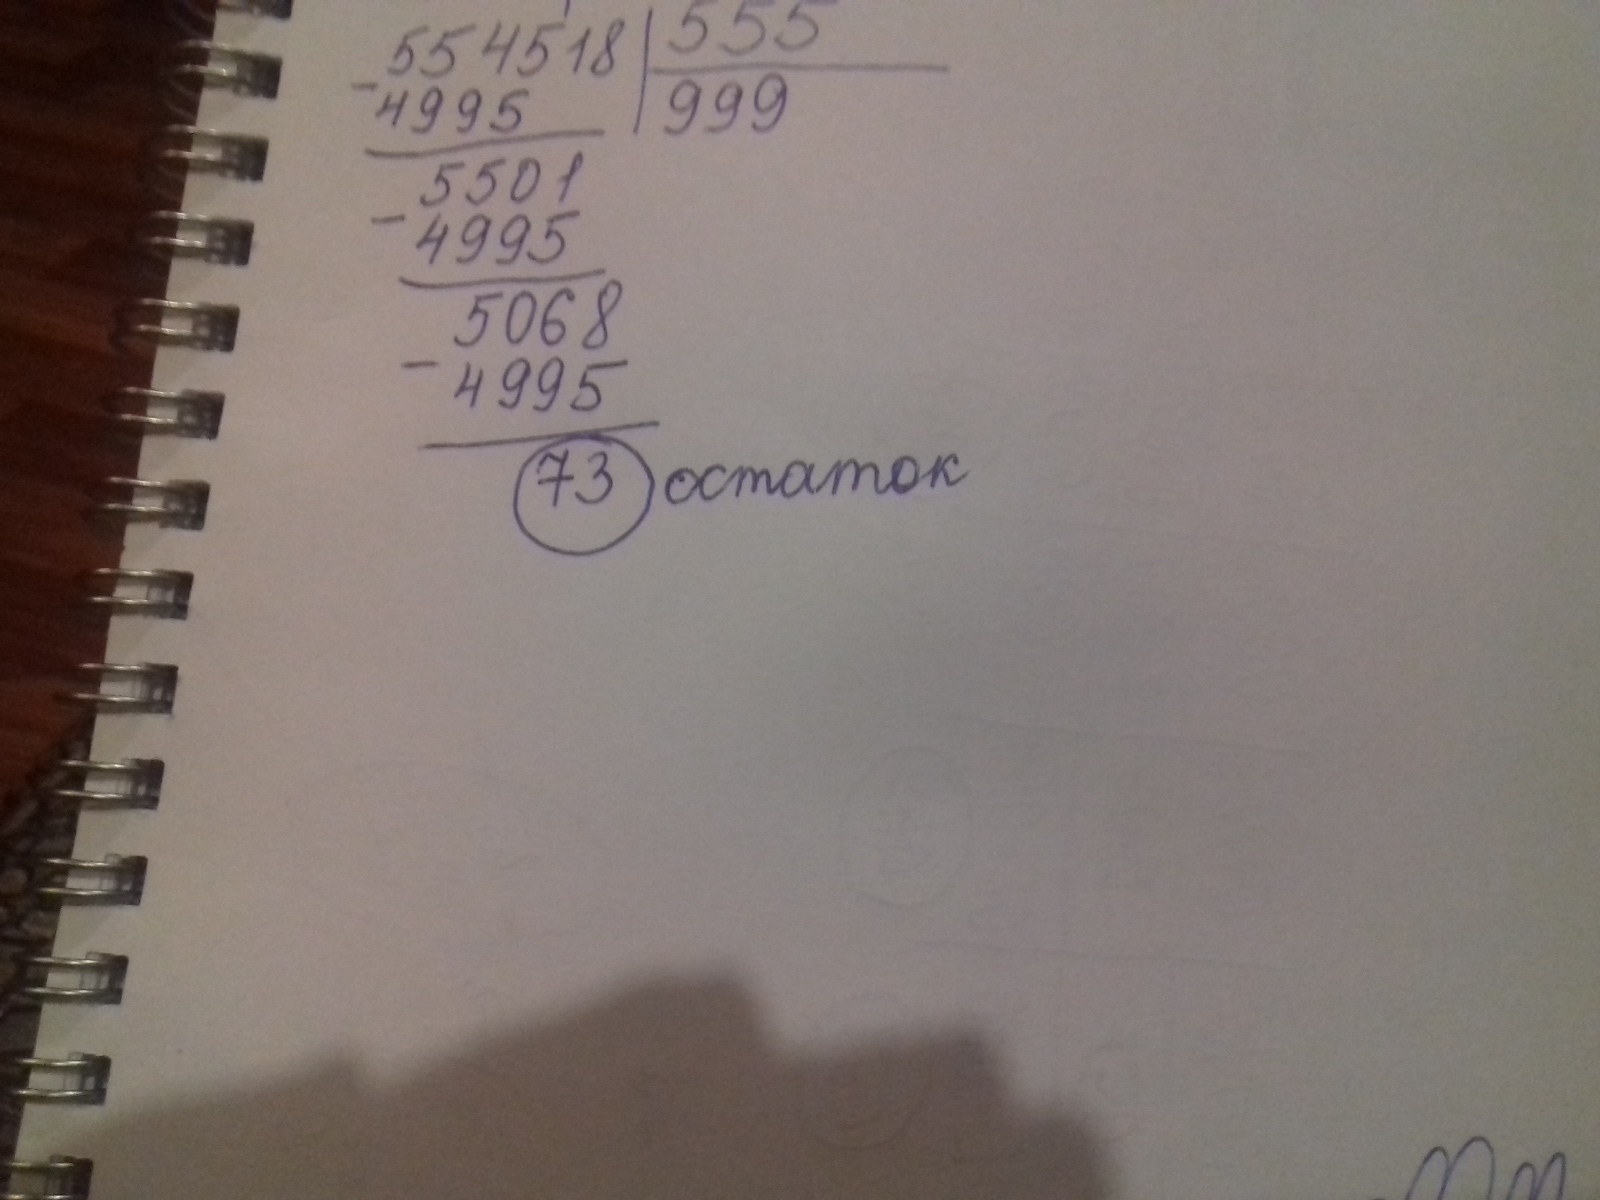 554518 | 555
- 4995 | 999
5501
- 4995
5068
- 4995
73 остаток